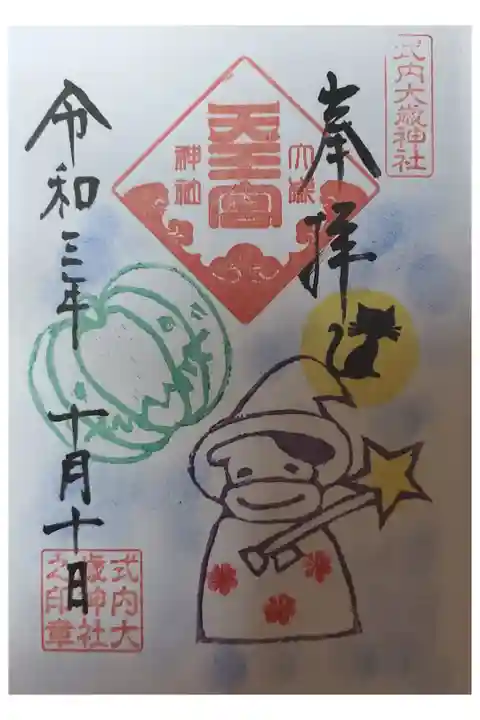 式内大歳神社
奉拝
大歳
天王宮
神社
令和三年 十月十日
式内大
歳神社
之印章